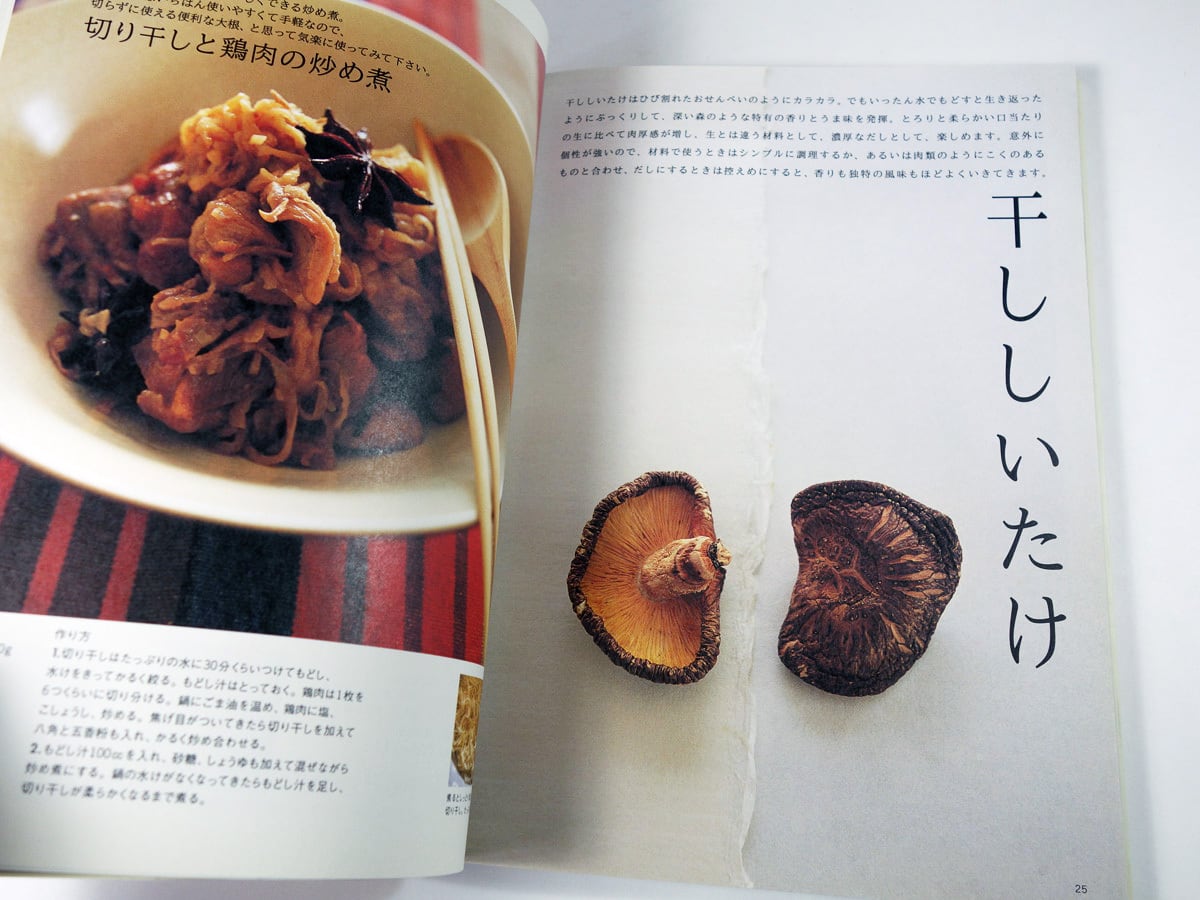 できる炒め煮。
ちばん使いやすくて手軽なので、
切らずに使える便利な大根、と思って気楽に使ってみて下さい。
切り干しと鶏肉の炒め煮
作り方
1.切り干しはたっぷりの水に30分くらいつけてもどし、
水けをきってかるく絞る。もどし汁はとっておく。鶏肉は1枚を
6つくらいに切り分ける。鍋にごま油を温め、鶏肉に塩、
こしょうし、炒める。焦げ目がついてきたら切り干しを加えて
八角と五香粉も入れ、かるく炒め合わせる。
2.もどし汁100ccを入れ、砂糖、しょうゆも加えて混ぜながら
炒め煮にする。鍋の水けがなくなってきたらもどし汁を足し、
切り干しが柔らかくなるまで煮る。
0g
干ししいたけはひび割れたおせんべいのようにカラカラ。でもいったん水でもどすと生き返った
ようにぷっくりして、深い森のような特有の香りとうま味を発揮。とろりと柔らかい口当たり
の生に比べて肉厚感が増し、生とは違う材料として、濃厚なだしとして、楽しめます。意外に
個性が強いので、材料で使うときはシンプルに調理するか、あるいは肉類のようにこくのある
ものと合わせ、だしにするときは控えめにすると、香りも独特の風味もほどよくいきてきます。
干ししいたけ
25